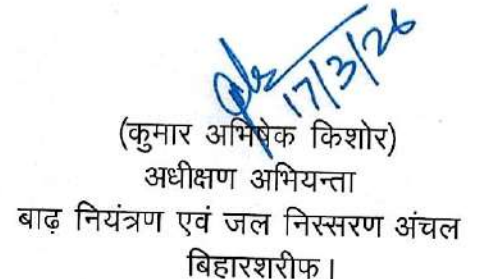 17/3/26
(कुमार अभिषेक किशोर)
अधीक्षण अभियन्ता
बाढ़ नियंत्रण एवं जल निस्सरण अंचल
बिहारशरीफ।